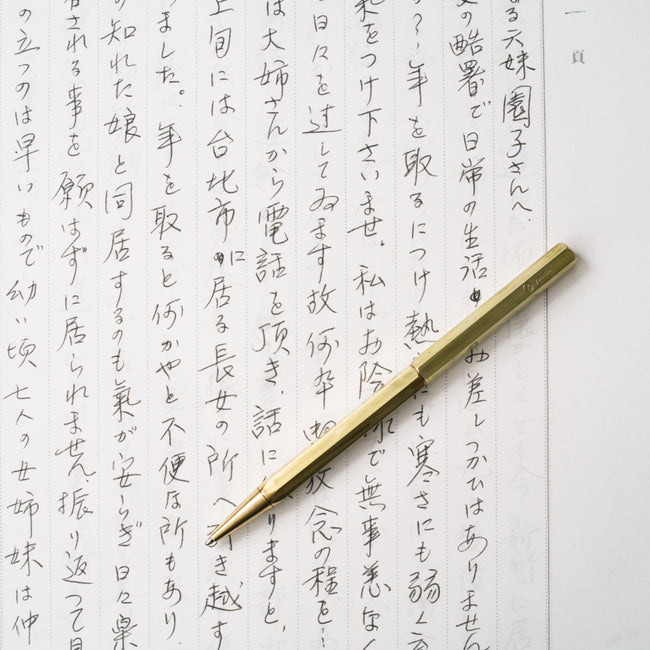 一頁
なる六妹園子さんへ.
の酷暑で日常の生活 お差しつかひはありません
年を取るにつけ熱 にも寒さにも弱く
をつけ下さいませ。私はお陰 で無事恙なく
日々を過してゐます故何卒 放念の程を…
は大姉さんから電話を頂き、話に りますと、
上旬には台北市に居る長女の所へ き越す
ました。年を取ると何かやと不便な所もあり、
の知れた娘と同居するのも氣が安らぎ日々
される事を願はずに居られません.振り返って
の立つのは早いもので幼い頃七人の女姉妹は仲